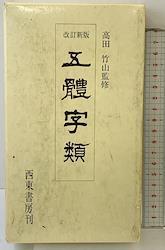 高田 竹山監修
改訂新版
五體字類
西東書房刊